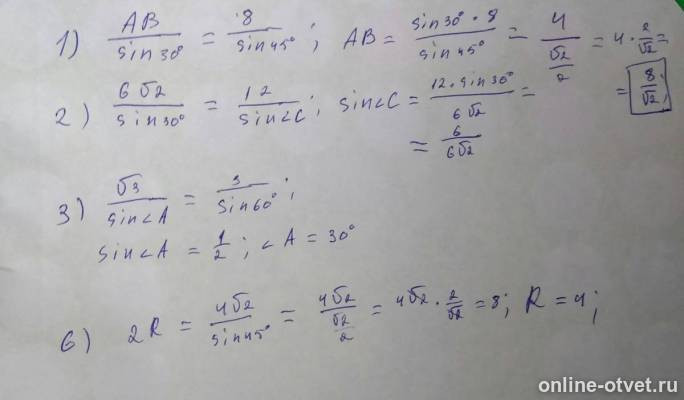 1) AB/sin30° = 8/sin45° ; AB = sin30°·8/sin45° = 4/(√2/2) = 4·2/√2 =
= 8/√2;
2) 6√2/sin30° = 12/sin∠C ; sin∠C = 12·sin30°/6√2 =
= 6/6√2
3) √3/sin∠A = 3/sin60° ;
sin∠A = 1/2 ; ∠A = 30°
6) 2R = 4√2/sin45° = 4√2/(√2/2) = 4√2·2/√2 = 8; R = 4;
online-otvet.ru